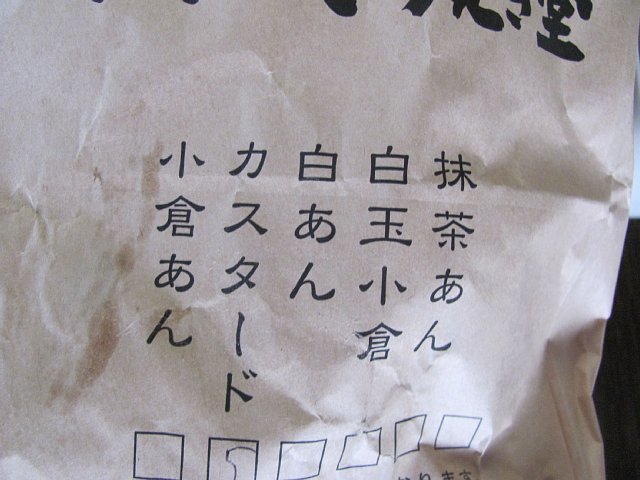 抹茶あん
白玉小倉
白あん
カスタード
小倉あん
5
おります